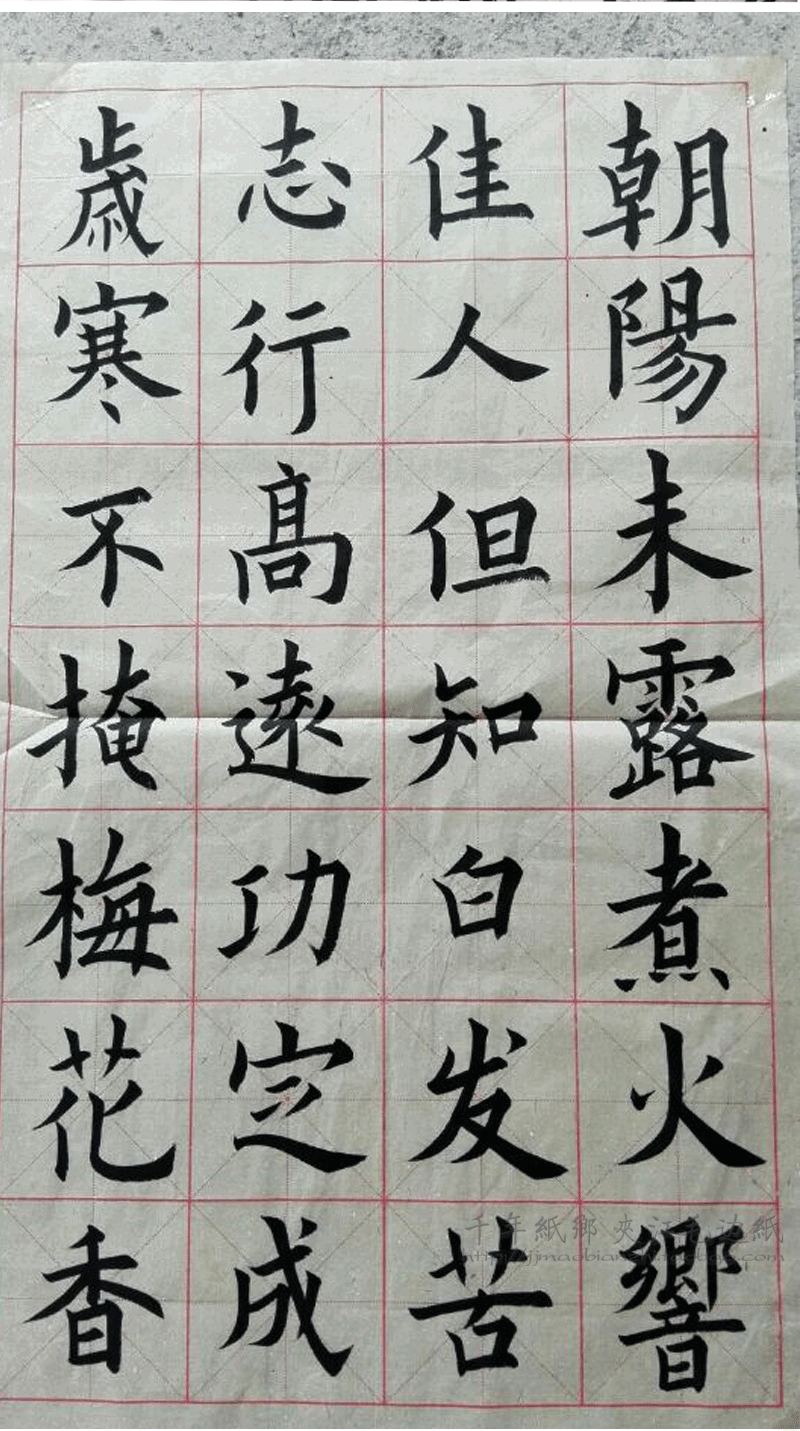 朝陽未露煮火響
佳人但知白发苦
志行高遠功定成
歳寒不掩梅花香
千年紙鄉 夾江毛边紙